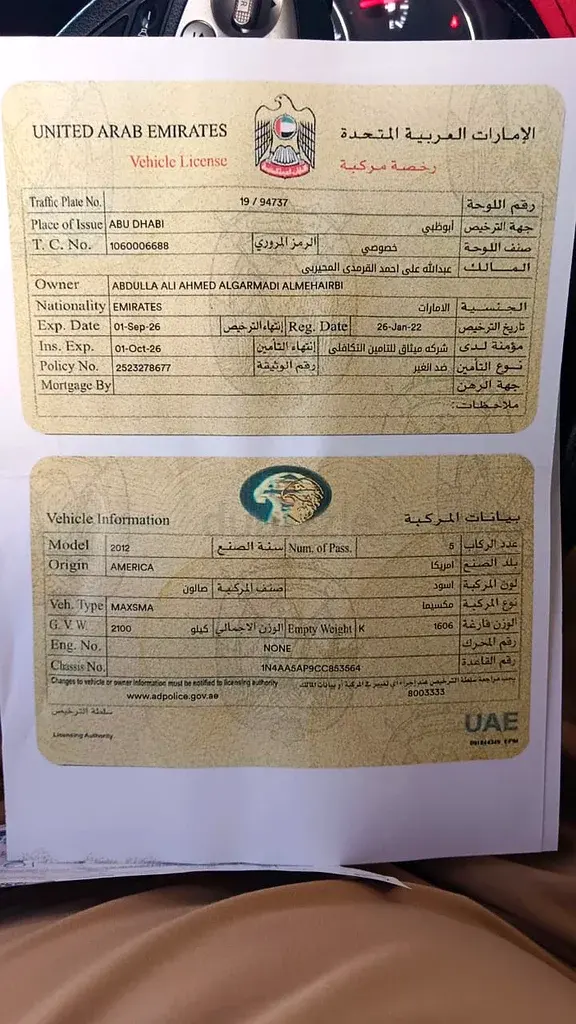 UNITED ARAB EMIRATES الإمارات العربية المتحدة
Vehicle License رخصة مركبة
Traffic Plate No. 19 / 94737 رقم اللوحة
Place of Issue ABU DHABI أبوظبي جهة الترخيص
T. C. No. 1060006688 الرمز المروري خصوصي صنف اللوحة
عبدالله على احمد القرمدى المحيربى المالك
Owner ABDULLA ALI AHMED ALGARMADI ALMEHAIRBI
Nationality EMIRATES الامارات الجنسية
Exp. Date 01-Sep-26 إنتهاء الترخيص Reg. Date 26-Jan-22 تاريخ الترخيص
Ins. Exp. 01-Oct-26 إنتهاء التأمين شركه ميثاق للتامين التكافلى مؤمنة لدى
Policy No. 2523278677 رقم الوثيقة ضد الغير نوع التأمين
Mortgage By جهة الرهن
ملاحظات:
Vehicle Information بيانات المركبة
Model 2012 سنة الصنع Num. of Pass. 5 عدد الركاب
Origin AMERICA امريكا بلد الصنع
صنف المركبة صالون اسود لون المركبة
Veh. Type MAXSMA مكسيما نوع المركبة
G. V. W. 2100 كيلو الوزن الاجمالي Empty Weight K 1606 الوزن فارغة
Eng. No. NONE رقم المحرك
Chassis No. 1N4AA5AP9CC853564 رقم القاعدة
Changes to vehicle or owner information must be notified to licensing authority يجب مراجعة سلطة الترخيص عند إجراء أي تغيير في المركبة أو بيانات المالك
www.adpolice.gov.ae 8003333
سلطة الترخيص
Licensing Authority
UAE